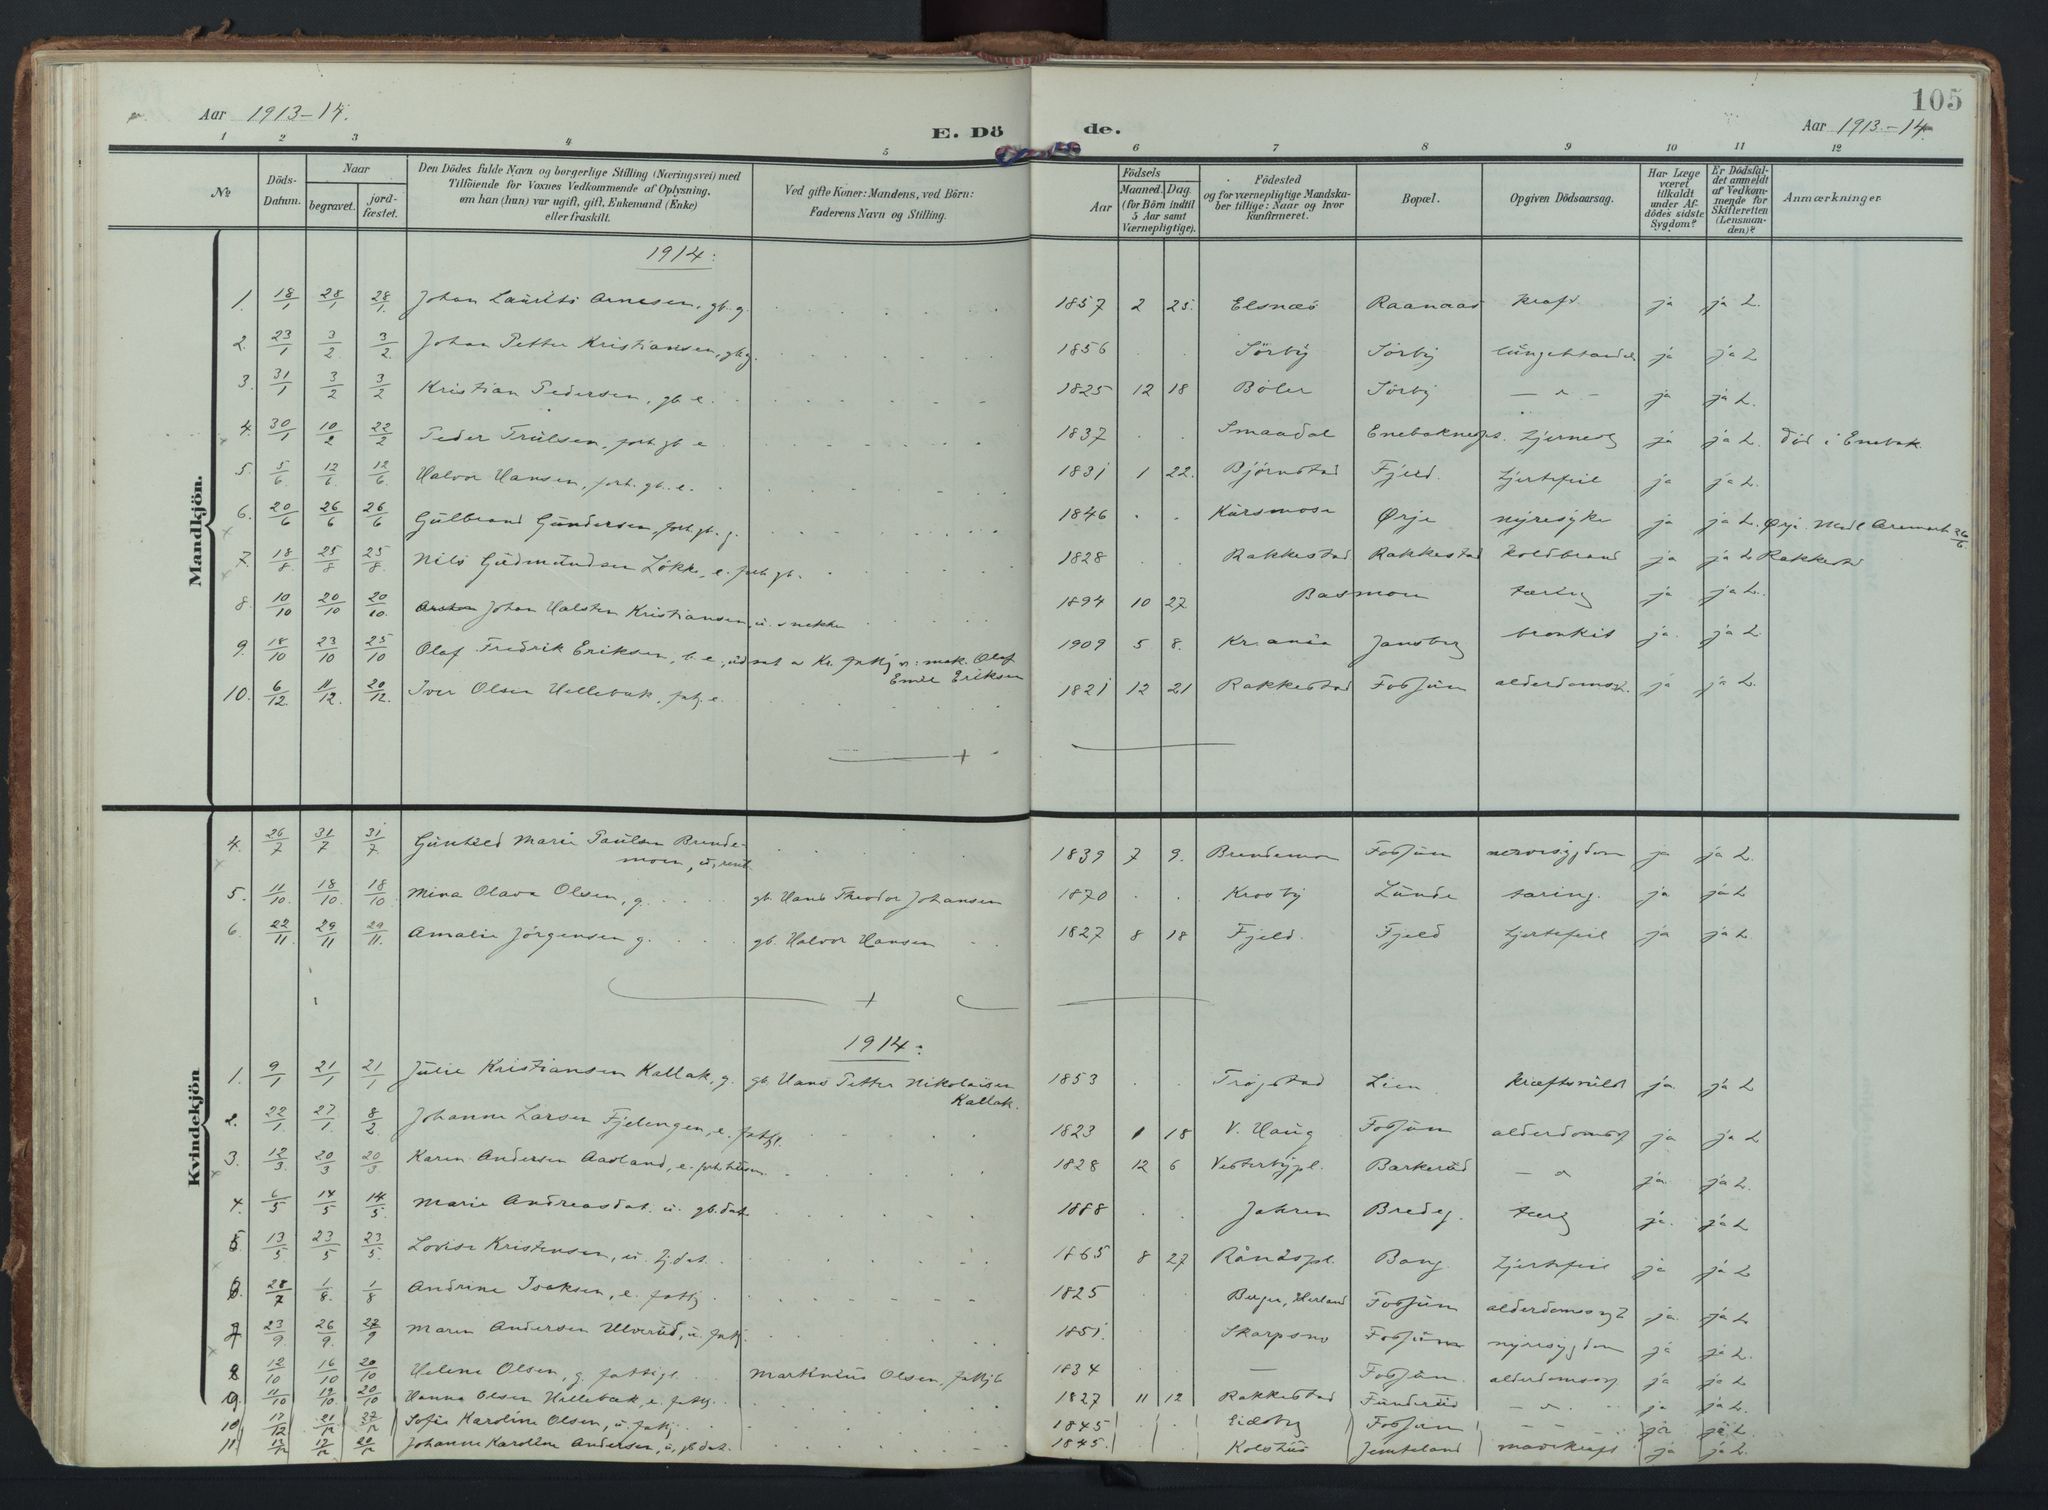 105
Aar 1913-14.
E. Dö de.
Aar 1913-14
1 2 3 4 5 6 7 8 9 10 11 12
№
Döds-Datum.
Naar
begravet.
jord-fæstet.
Den Dödes fulde Navn og borgerlige Stilling (Næringsvei) med
Tilföiende for Voxnes Vedkommende af Oplysning,
om han (hun) var ugift, gift, Enkemand (Enke)
eller fraskilt.
Ved gifte Koner: Mandens, ved Börn:
Faderens Navn og Stilling.
Födsels
Aar
Maaned. Dag.
(for Börn indtil
5 Aar samt
Værnepligtige).
Födested
og for værnepligtige Mandska-
ber tillige: Naar og hvor
konfirmeret.
Bopæl.
Opgiven Dödsaarsag.
Har Læge
været
tilkaldt
under Af-
dödes sidste
Sygdom?
Er Dödsfal-
det anmeldt
af Vedkom-
mende for
Skifteretten
(Lensman-
den)?
Anmærkninger
Mandkjön.
1914.
1. 18/1 28/1 28/1. Johan Laurits Arnesen, gb. g. 1857 2 25. Elsnæs Raanaas kræft. ja ja L.
2. 23/1 3/2 3/2. Johan Petter Kristiansen, gb. g. 1856 Sörby Sörby ja ja L
3. 31/1 3/2 3/2 Kristian Pedersen, gb. e. 1825 12 18 Böler Sörby — " — ja ja L.
4. 30/1 10/2 22/2 Peder Trulsen, forh. gb. e. 1837 Smaadal ja ja L. död i Enebak.
5. 5/6 12/6 12/6. Halvor Hansen, forh. gb. e. 1831 1 22. Björnstad Fjeld. hjertefeil ja ja L.
6. 20/6 26/6 26/6 Gulbrand Gundersen, forh. gb. g. 1846 Kursmose Ørje nyresyke ja ja L. Ørje Aremark 26/6.
7. 18/8. 25/8 25/8 Nils Gudmundsen Lökke, e. forh. gb. 1828 Rakkestad Rakkestad koldbrand ja ja L Rakkestad
8. 10/10 20/10 20/10. Johan Halsten Kristiansen, u. snekker 1894 10 27 Basmoen tæring ja ja L.
9. 18/10 23/10 25/10 Olaf Fredrik Eriksen, b. e., udsat av Kr. fattigv: mek. Olaf
Emil Eriksen 1909 5 8. Kr.ania Jansberg bronkit ja. ja L.
10. 6/12. 11/12. 20/12. Iver Olsen Hellebæk, fatg. e. 1821 12 21 Rakkestad Fossum alderdomss. ja ja L.
Kvindekjön
4. 26/7 31/7 31/7. Marie Paulsen Brende-
moen, u, rent 1839 7 9. Brendemoen Fossum nervesygdom ja ja L.
5. 11/10. 18/10. 18/10 Mina Olava Olsen, g. gb. Hans Theodor Johansen 1870 Krosby Lunde tæring. ja ja L.
6. 22/11. 29/11 29/11. Amalie Jörgensen g. gb. Halvor Hansen 1827 8 18 Fjeld. Fjeld hjertefeil ja ja L.
1914.
1. 9/1 21/1 21/1 Julie Kristiansen Kallak, g. gb. Hans Petter Nikolaisen
Kallak. 1853 Trögstad Lien ja. ja L
2. 22/1. 27/1. 8/2 Johanne Larsen Fjelengen, e. fattgl. 1823 1 18 V. Haug Fossum alderdomss. ja ja L
3. 12/3. 20/3 20/3 Karen Andersen Aasland, e. forh. husm 1828 12 6 Vesterbypl. Barkerud — " ja. ja L.
4. 6/5 14/5 14/5. Marie Andreasdat. u. gb.dat. 1888 Jahren Bredeg. tærg ja. ja L
5 13/5 23/5 23/5. Lovise Kristensen, u. tj.dat. 1865 8 27 Bong. hjertefeil ja ja L
6. 28/7 1/8 1/8 Andrine Isaksen, e. fattg. 1825 Berger, Herland Fossum ja. ja L
7 23/9. 26/9. 27/9 Maren Andersen Ulverud, u. fattg. 1851. Skarpsno Fossum nyresygdom ja ja L.
8 12/10 16/10 20/10 Helene Olsen, g. fattigl. Olsen, fattigl 1834 — Fossum. alderdomss. ja ja L
9. 11/10 19/10 20/10 Hanna Olsen Hellebæk, e. fattg. 1827 11 12 Rakkestad Funderud — " — ja ja L.
10 17/12 21/12 27/12 Sofie Karoline Olsen, u. fattg. 1845 Eidsberg Fossum — ja ja L.
11. 12/12 17/12 20/12 Johanne Karoline Andersen, u, gb.dat. 1845. Kolshus Jemteland mavekræft ja ja L.